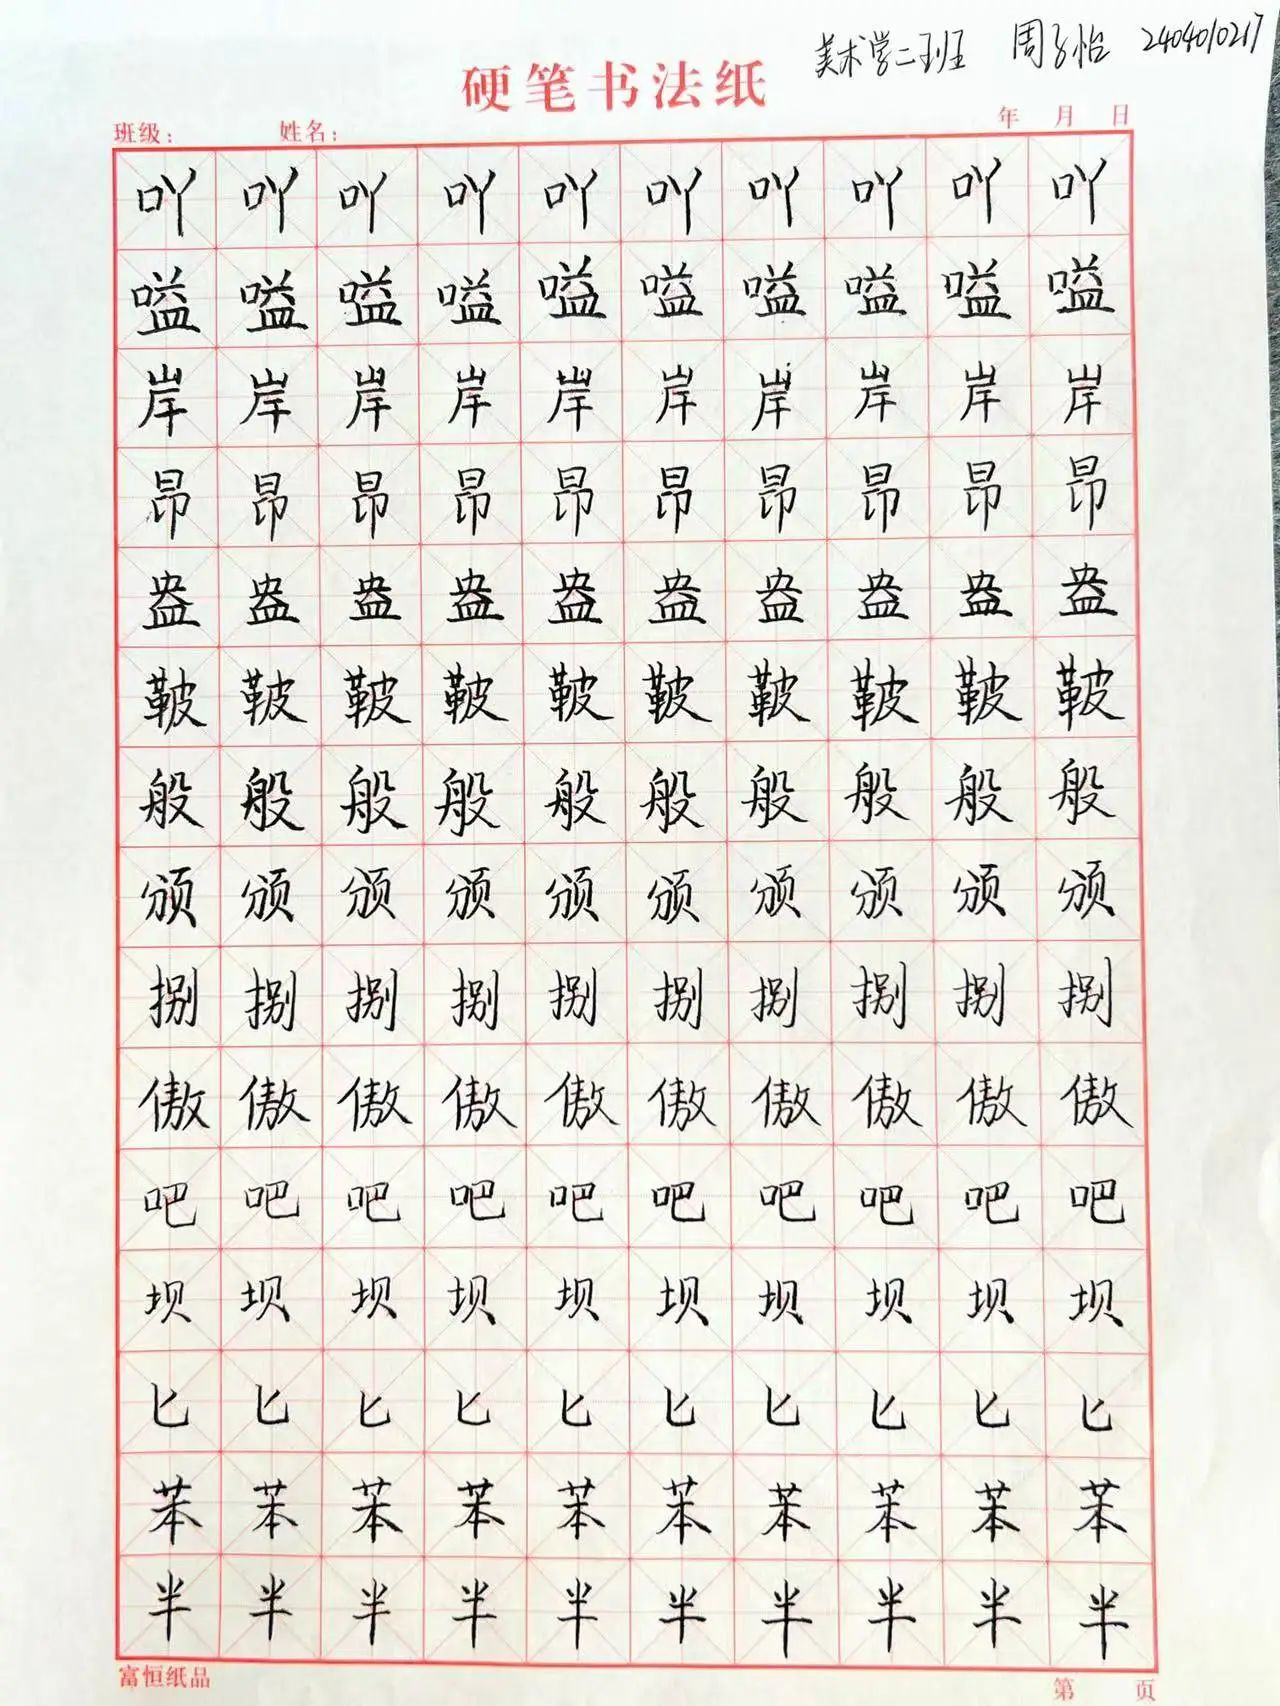 美术学二班 周子怡 2404010217
硬笔书法纸
班级： 姓名： 年 月 日
吖 吖 吖 吖 吖 吖 吖 吖 吖 吖
嗌 嗌 嗌 嗌 嗌 嗌 嗌 嗌 嗌 嗌
岸 岸 岸 岸 岸 岸 岸 岸 岸 岸
昂 昂 昂 昂 昂 昂 昂 昂 昂 昂
盎 盎 盎 盎 盎 盎 盎 盎 盎 盎
鞁 鞁 鞁 鞁 鞁 鞁 鞁 鞁 鞁 鞁
般 般 般 般 般 般 般 般 般 般
颁 颁 颁 颁 颁 颁 颁 颁 颁 颁
捌 捌 捌 捌 捌 捌 捌 捌 捌 捌
傲 傲 傲 傲 傲 傲 傲 傲 傲 傲
吧 吧 吧 吧 吧 吧 吧 吧 吧 吧
坝 坝 坝 坝 坝 坝 坝 坝 坝 坝
匕 匕 匕 匕 匕 匕 匕 匕 匕 匕
苯 苯 苯 苯 苯 苯 苯 苯 苯 苯
半 半 半 半 半 半 半 半 半 半
富恒纸品 第 页